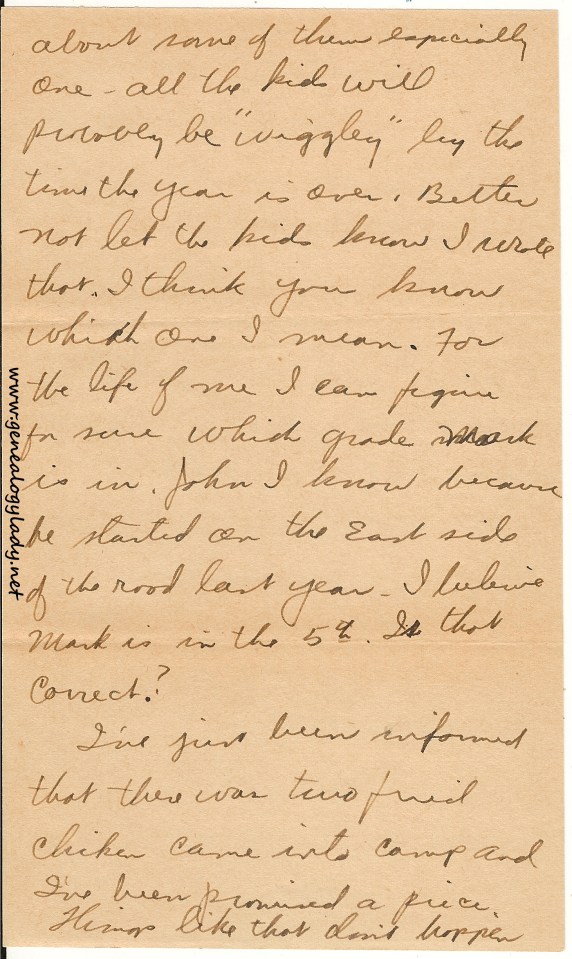 about some of them especially
one - all the kids will
provobly be "wiggley" by the
time the year is over. Better
not let the kids know I wrote
that. I think you know
which one I mean. For
the life of me I can figure
for sure which grade Mark
is in. John I know because
he started on the East side
of the road last year - I beleive
Mark is in the 5th. Is that
Correct?
I've just been informed
that there was two fried
chiken came into camp and
I've been promised a piece.
Things like that don't happen
www.genealogylady.net